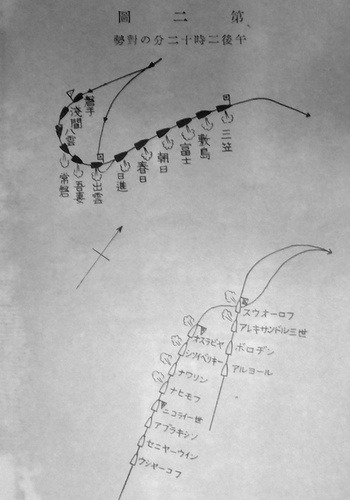 圖二第
勢對の分二十時二後午
磐手
浅間
八雲
常磐
吾妻
出雲
日進
春日
朝日
富士
敷島
三笠
スウオーロフ
アレキサンドル三世
ボロヂン
アルヨール
オスラビヤ
シソイベリキー
ナワリン
ナヒモフ
ニコライ一世
アプラキシン
セニヤーウイン
ウシヤーコフ